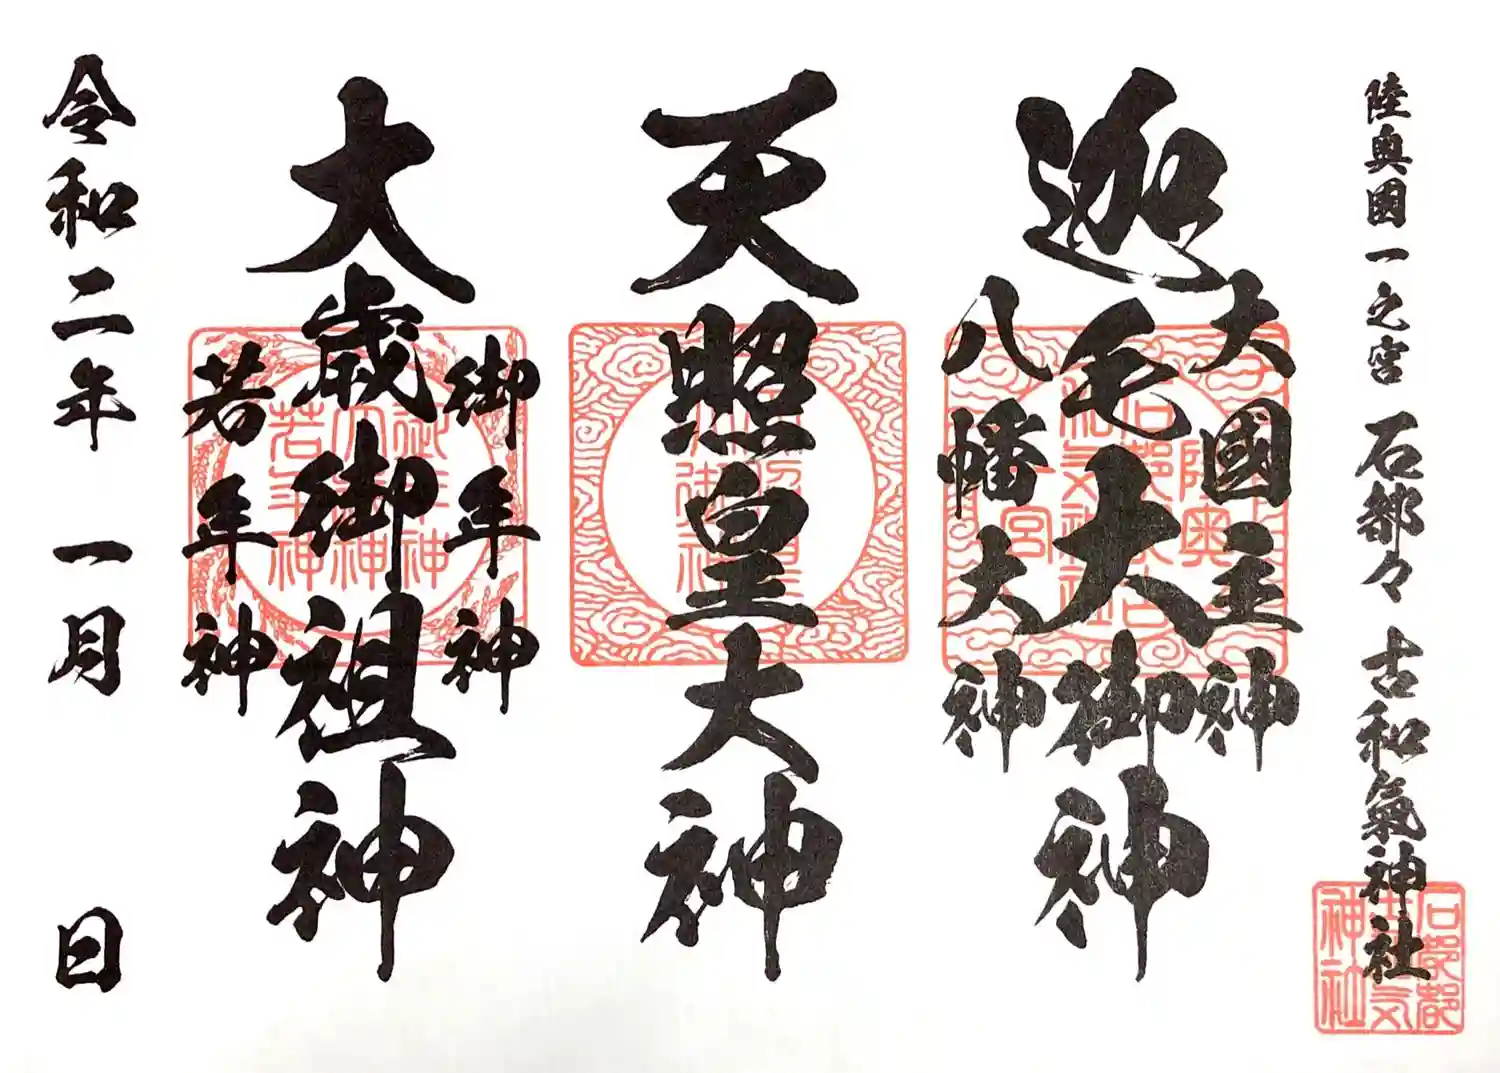 陸奥國一之宮 石都々古和氣神社
大國主神
迦毛大御神
八幡大神
天照皇大神
御年神
大歳御祖神
若年神
令和二年 一月 日
石都都
神社